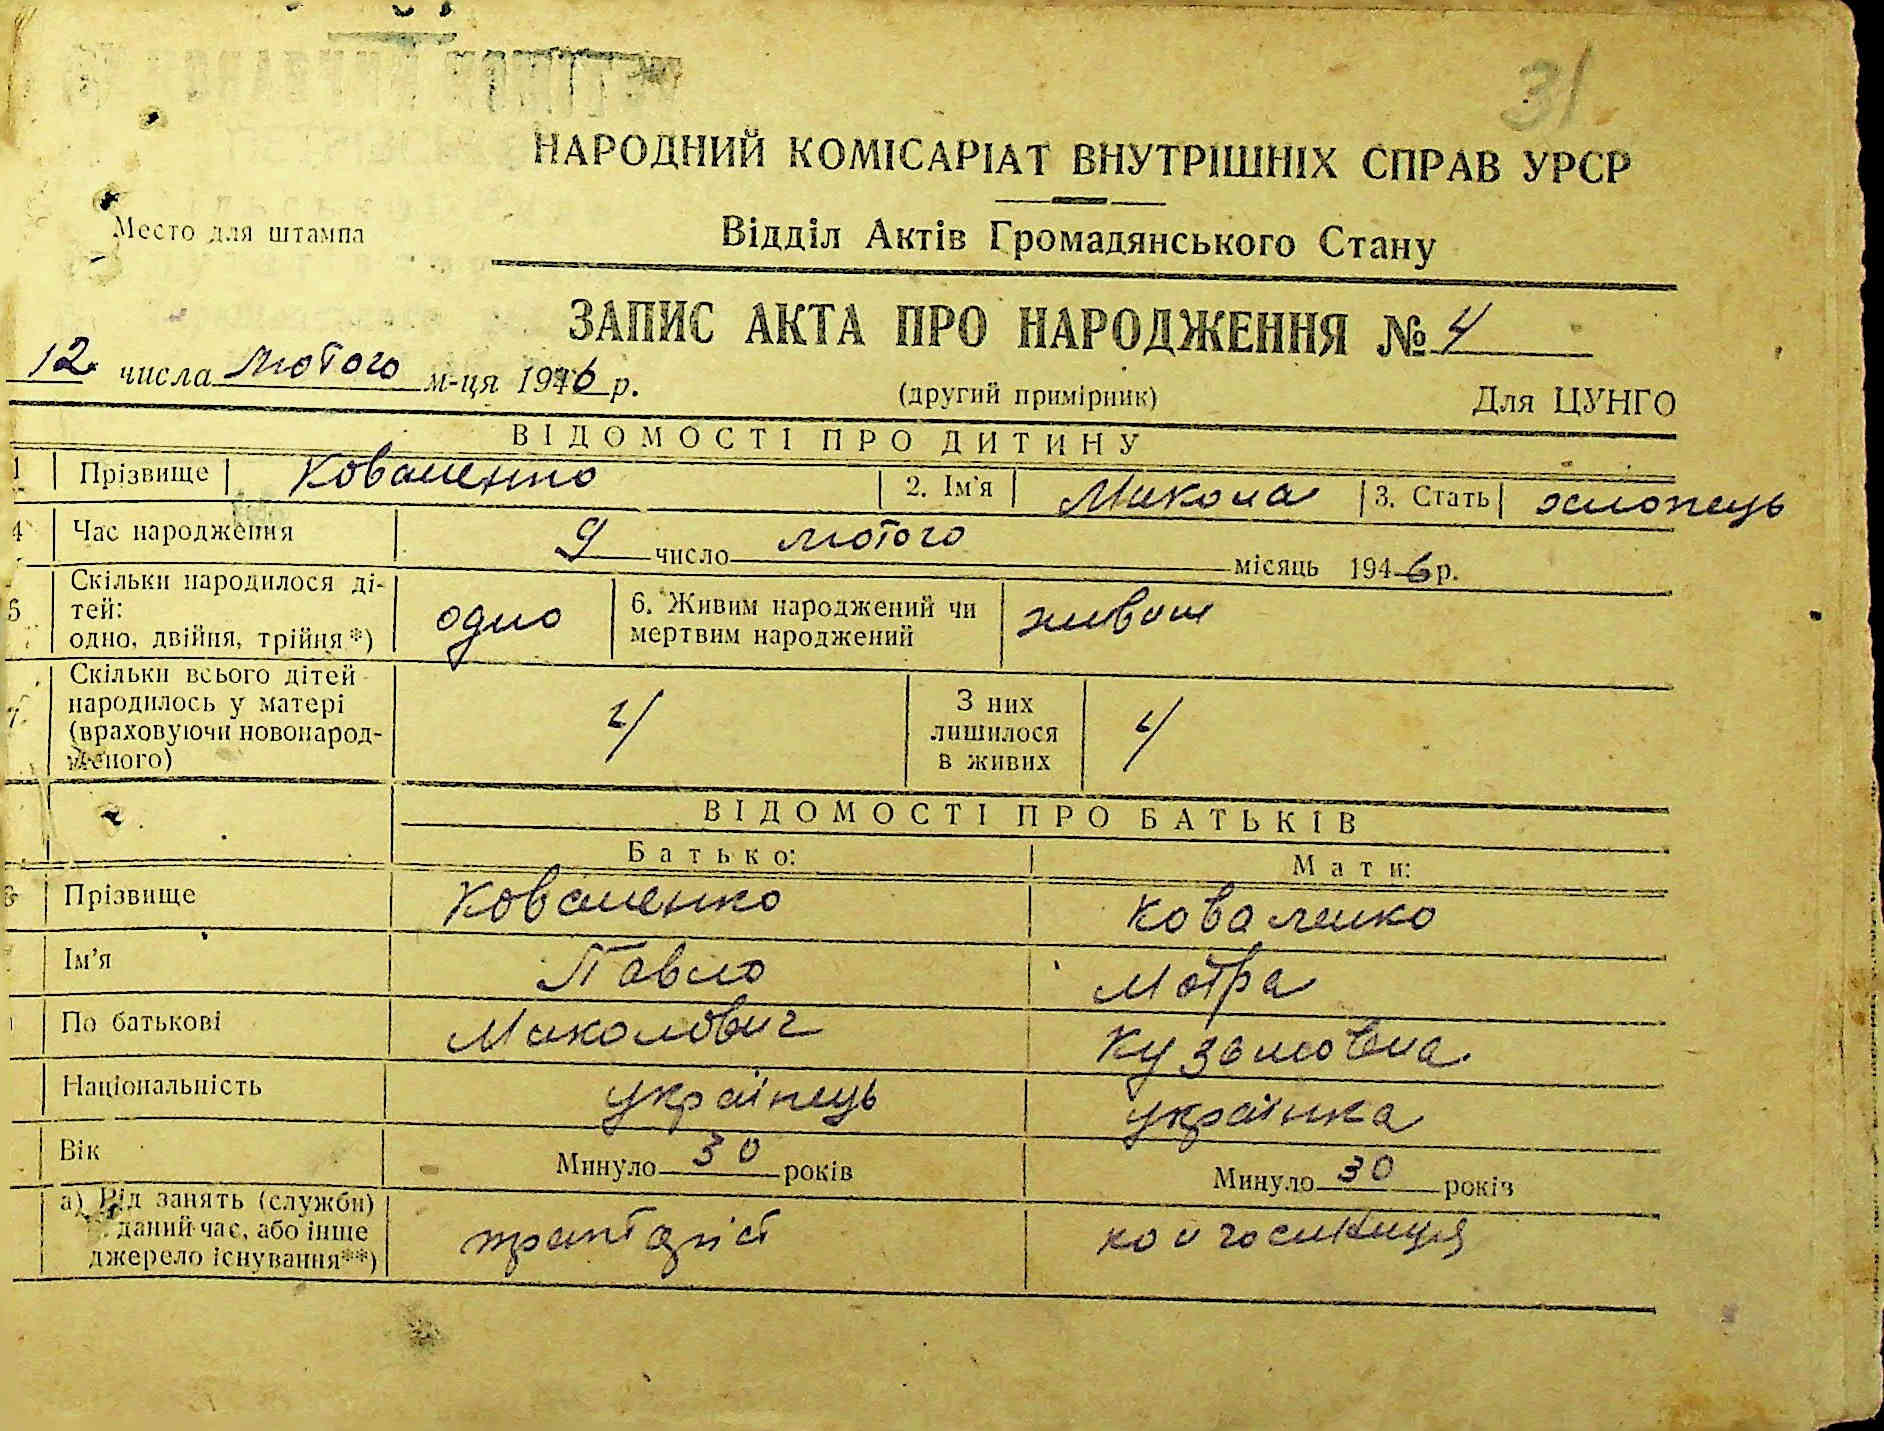 31
НАРОДНИЙ КОМІСАРІАТ ВНУТРІШНІХ СПРАВ УРСР
Место для штампа
Відділ Актів Громадянського Стану
ЗАПИС АКТА ПРО НАРОДЖЕННЯ № 4
12 числа лютого м-ця 1946 р.
(другий примірник) Для ЦУНГО
ВІДОМОСТІ ПРО ДИТИНУ
1 Прізвище Коваленко 2. Ім'я Микола 3. Стать хлопець
4 Час народження 9 число лютого місяць 1946 р.
5 Скільки народилося ді-
тей:
одно, двійня, трійня*) одно 6. Живим народжений чи
мертвим народжений живим
7. Скільки всього дітей
народилось у матері
(враховуючи новонарод-
женого) 4 З них
лишилося
в живих 4
ВІДОМОСТІ ПРО БАТЬКІВ
Батько: Мати:
Прізвище Коваленко Коваленко
Ім'я Павло Мотра
По батькові Миколович Кузьмовна
Національність українець українка
Вік Минуло 30 років Минуло 30 років
а) Рід занять (служби)
даний час, або інше
джерело існування**) тракторіст колгоспниця